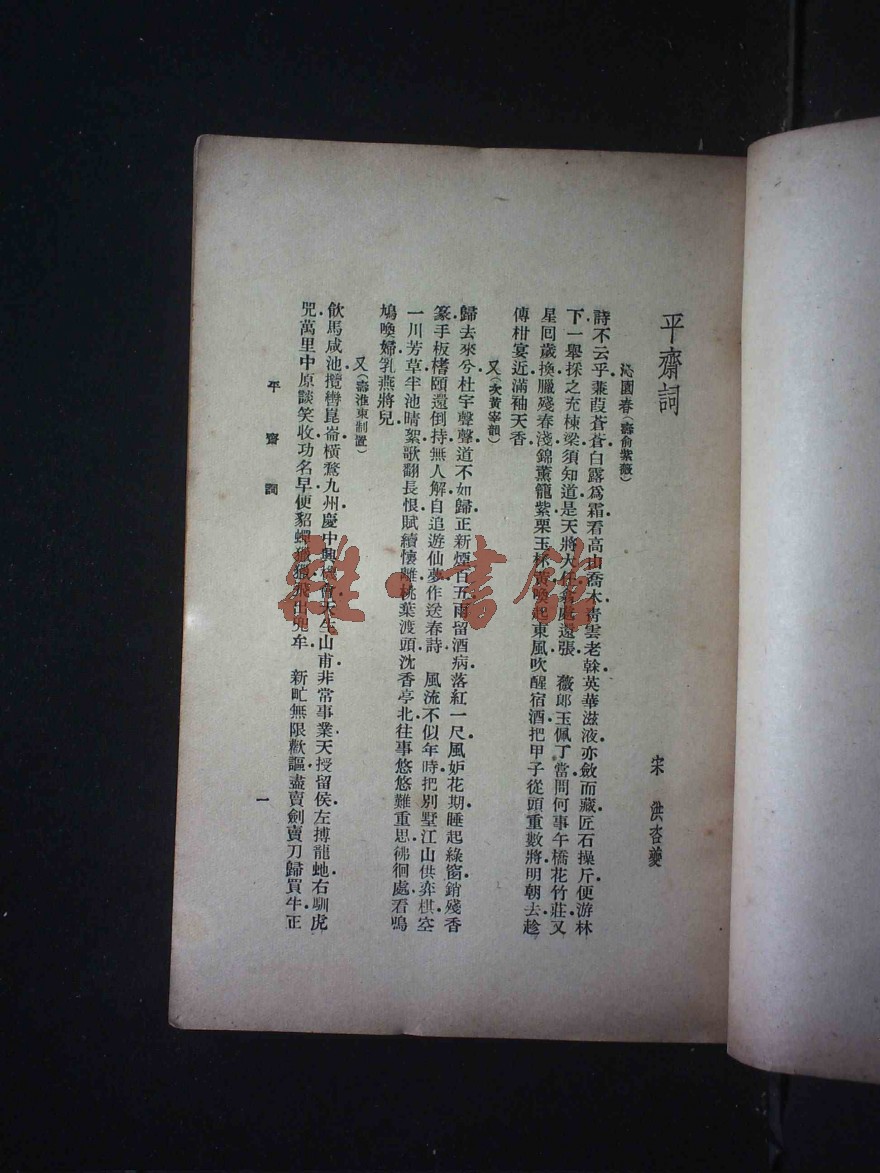 平齋詞
宋 洪咨夔
沁園春(壽俞紫薇)
詩不云乎蒹葭蒼蒼白露爲霜看高山喬木青雲老榦英華滋液亦斂而藏匠石操斤便游林
下一舉採之充棟梁須知道是天將大任翕處還張 薇郎玉佩丁當問何事午橋花竹莊又
星回歲換臘殘春淺錦薰籠紫栗玉杯黃喚起東風吹醒宿酒把甲子從頭重數將明朝去趁
傳柑宴近滿袖天香
又(次黃宰韻)
歸去來兮杜宇聲聲道不如歸正新煙百五雨留酒病落紅一尺風妒花期睡起綠窗銷殘香
篆手板楮頤還倒持無人解自追遊仙夢作送春詩 風流不似年時把別墅江山供弈棋空
一川芳草半池晴絮歌翻長恨賦續懷離桃葉渡頭沈香亭北往事悠悠難重思彿徊處看鳴
鳩喚婦乳燕將兒
又(壽淮東制置)
飲馬咸池攬轡崑崙橫騖九州慶中興機會天生山甫非常事業天授留侯左搏龍虵右馴虎
兕萬里中原談笑收功名早便貂蟬獵獵飛出兜牟 新甿無限歡謳盡賣劍賣刀歸買牛正
平齋詞
一
雜·書館